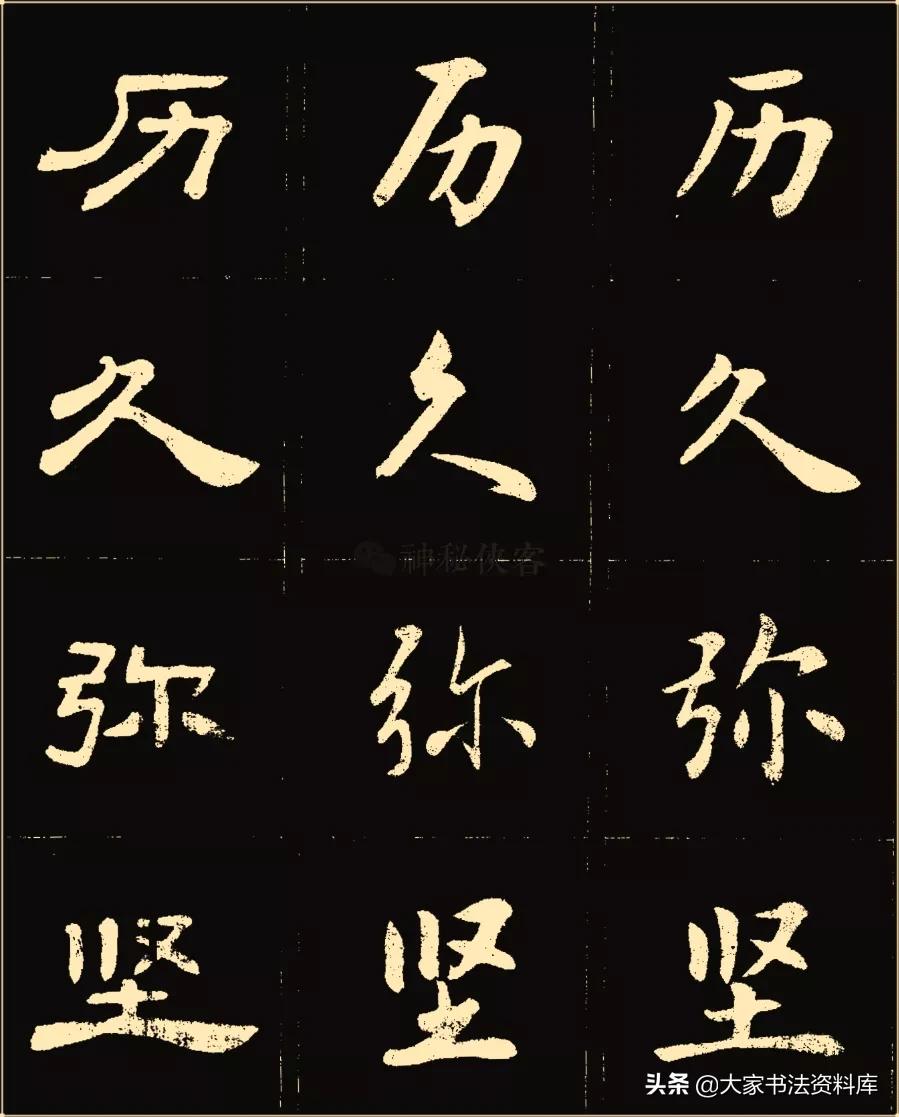 历 历 历
久 久 久
神秘侠客
弥 弥 弥
坚 坚 坚
头条 @大家书法资料库